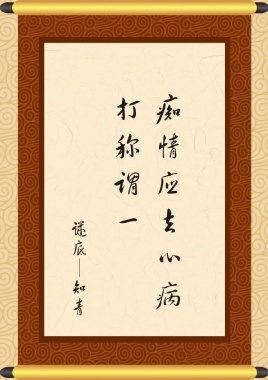 痴情应去心病
打称谓一
谜底——知青